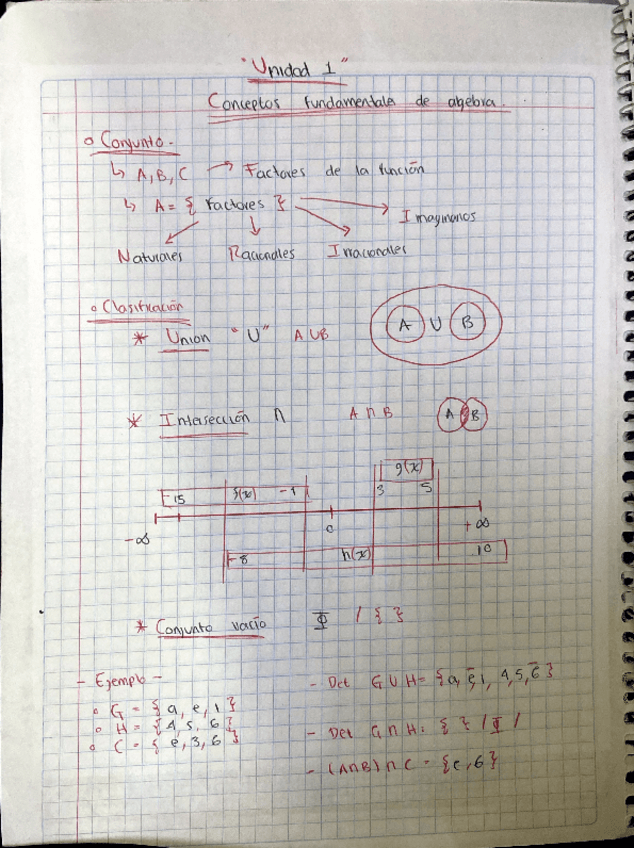 "Unidad 1"
Conceptos fundamentales de algebra.
Conjunto.
↳ A, B, C → Factores de la función
↳ A = { Factores }
Imaginarios
Naturales Racionales Irracionales
Clasificación
* Union "U" A U B
A U B
* Intersección ∩ A ∩ B
A B
g(x)
-15 f(x) -1 3 5
-∞ 0 +∞
-8 h(x) 10
* Conjunto vacío Φ / { }
- Ejemplo -
G = {a, e, 1}
H = {4, 5, 6}
C = {e, 3, 6}
- Det G U H = {a, e, 1, 4, 5, 6}
- Det G ∩ H: { } / Φ /
- (A∩B) ∩ C = {e, 6}